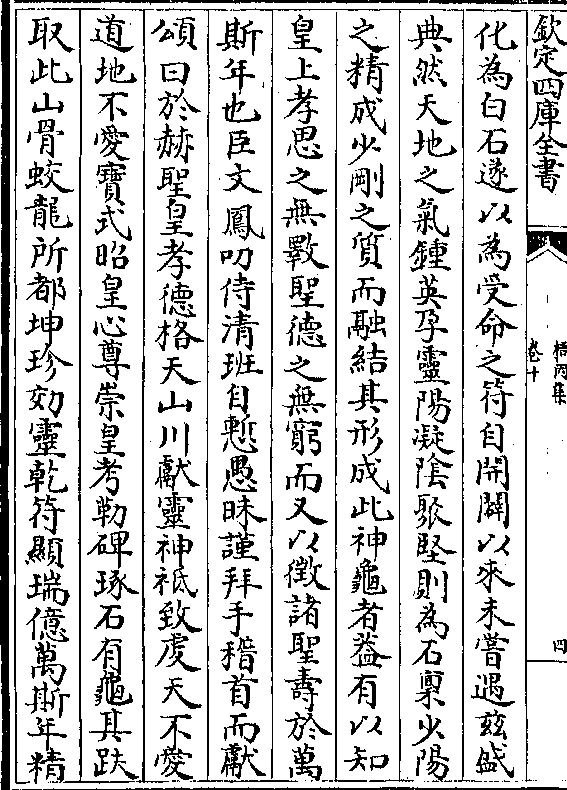 欽定四庫全書
梧岡集
卷十
四
化為白石遂以為受命之符自開闢以來未嘗遇茲盛
典然天地之氣鍾英孕靈陽凝陰聚堅則為石稟少陽
之精成少剛之質而融結其形成此神龜者蓋有以知
皇上孝思之無斁聖德之無窮而又以徵諸聖壽於萬
斯年也臣文鳳叨侍清班自慙愚昧謹拜手稽首而獻
頌曰於赫聖皇孝德格天山川獻靈神祗致虔天不愛
道地不愛寶式昭皇心尊崇皇考勒碑琢石有龜其趺
取此山骨蛟龍所都坤珍効靈乾符顯瑞億萬斯年精